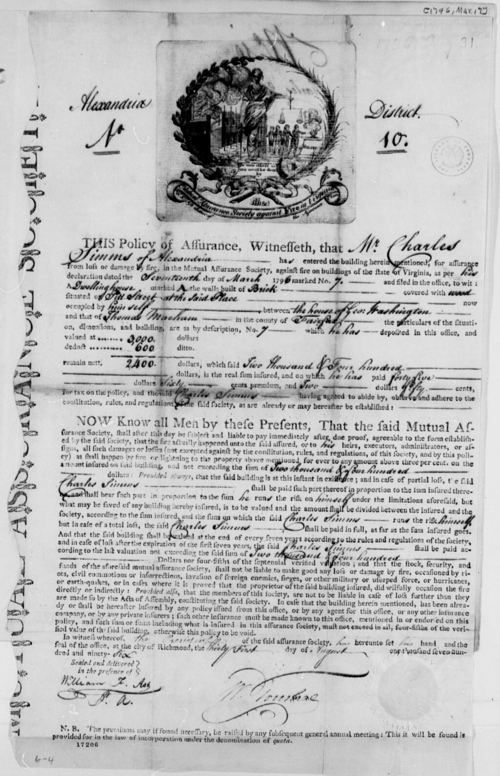 [1796, Mar. 17]
Alexandria District.
No. 10.
Mutual Assurance Society against Fire in Virginia
MUTUAL ASSURANCE SOCIETY
THIS Policy of Assurance, Witnesseth, that Mr. Charles
Simms of Alexandria has entered the building herein mentioned, for assurance
from loss or damage by fire, in the Mutual Assurance Society, against fire on buildings of the state of Virginia, as per his
declaration dated the Seventeenth day of March 1796 marked No. 7. and filed in the office, to wit:
A Dwelling house marked A the walls built of Brick covered with wood
situated on Pitt Street at the said Place now
occupied by himself between the house of Gen. Washington
and that of Thomas in the county of Fairfax the particulars of the situati-
on, dimensions, and building, are as by description, No. 7 which he has deposited in this office, and
valued at 3,000 dollars
deduct 600 ditto.
remain nett. 2,400 dollars, which said Two thousand & Four hundred
dollars, is the real sum insured, and on which he has paid forty five
dollars Sixty cents premium, and Two dollars cents,
for tax on the policy, and the said Charles Simms having agreed to abide by, observe and adhere to the
constitution, rules, and regulations of the said society, as are already or may hereafter be established:
NOW Know all Men by these Presents, That the said Mutual As-
surance Society, shall after this day be subject and liable to pay immediately after due proof, agreeable to the form establish-
ed by the said society, that the fire actually happened unto the said assured, or to his heirs, executors, administrators, or as-
signs, all such damages or losses (not excepted against by the constitution, rules, and regulations, of this society, and by this poli-
cy) as shall happen by fire or lightning to the property above mentioned, for ever to any amount above three per cent. on the
amount insured on said building, and not exceeding the sum of Two thousand & four hundred
dollars: Provided always, that the said building is at this instant in existence; and in case of partial loss, the said
Charles Simms shall be paid such part thereof in proportion to the sum insured there-
and shall bear such part in proportion to the sum he runs the risk on himself under the limitations aforesaid, but
what may be saved of any building hereby insured, is to be valued and the amount shall be divided between the insured and the
society, according to the sum insured, and the sum on which the said Charles Simms runs the risk himself,
but in case of a total loss, the said Charles Simms shall be paid in full, as far as the sum insured goes.
And that the said building shall be valued at the end of every seven years according to the rules and regulations of the society
and in case of loss after the expiration of the first seven years, the said Charles Simms shall be paid ac-
cording to the last valuation not exceeding the said sum of Two thousand & four hundred
Dollars nor four-fifths of the septennial verified valuation; and that the stock, security, and
funds of the aforesaid mutual assurance society, shall not be liable to make good any loss or damage by fire, occasioned by ri-
ots, civil commotions or insurrections, invasion of foreign enemies, sieges, or other military or usurped force, or hurricanes,
or earth-quakes, or in cases where it is proved that the proprietor of the said building insured, did wilfully occasion the fire
directly or indirectly: Provided also, that the members of this society, are not to be liable in case of loss further than they
are made so by the Acts of Assembly, constituting the said society. In case that the building herein mentioned, has been alrea-
dy or shall be hereafter insured by any policy issued from this office, or by any agent for this office, or any other insurance
company, or by any private insurers; such other insurance must be made known to this office, mentioned in or endorsed on this
policy, and such sum or sums including what is insured in this assurance society, shall not exceed in all, four-fifths of the veri-
fied value of the said building, otherwise this policy to be void.
In witness thereof, the of the said assurance society, has hereunto set his hand and the
seal of the office, at the city of Richmond, the Thirty first day of August one thousand seven hun-
dred and ninety-six
Sealed and delivered
in the presence of
William F.
P. A.
N. B. The premiums may if found necessary, be raised by any subsequent general annual meeting: This will be found is
provided for in the law of incorporation under the denomination of quota.
17206
6-4